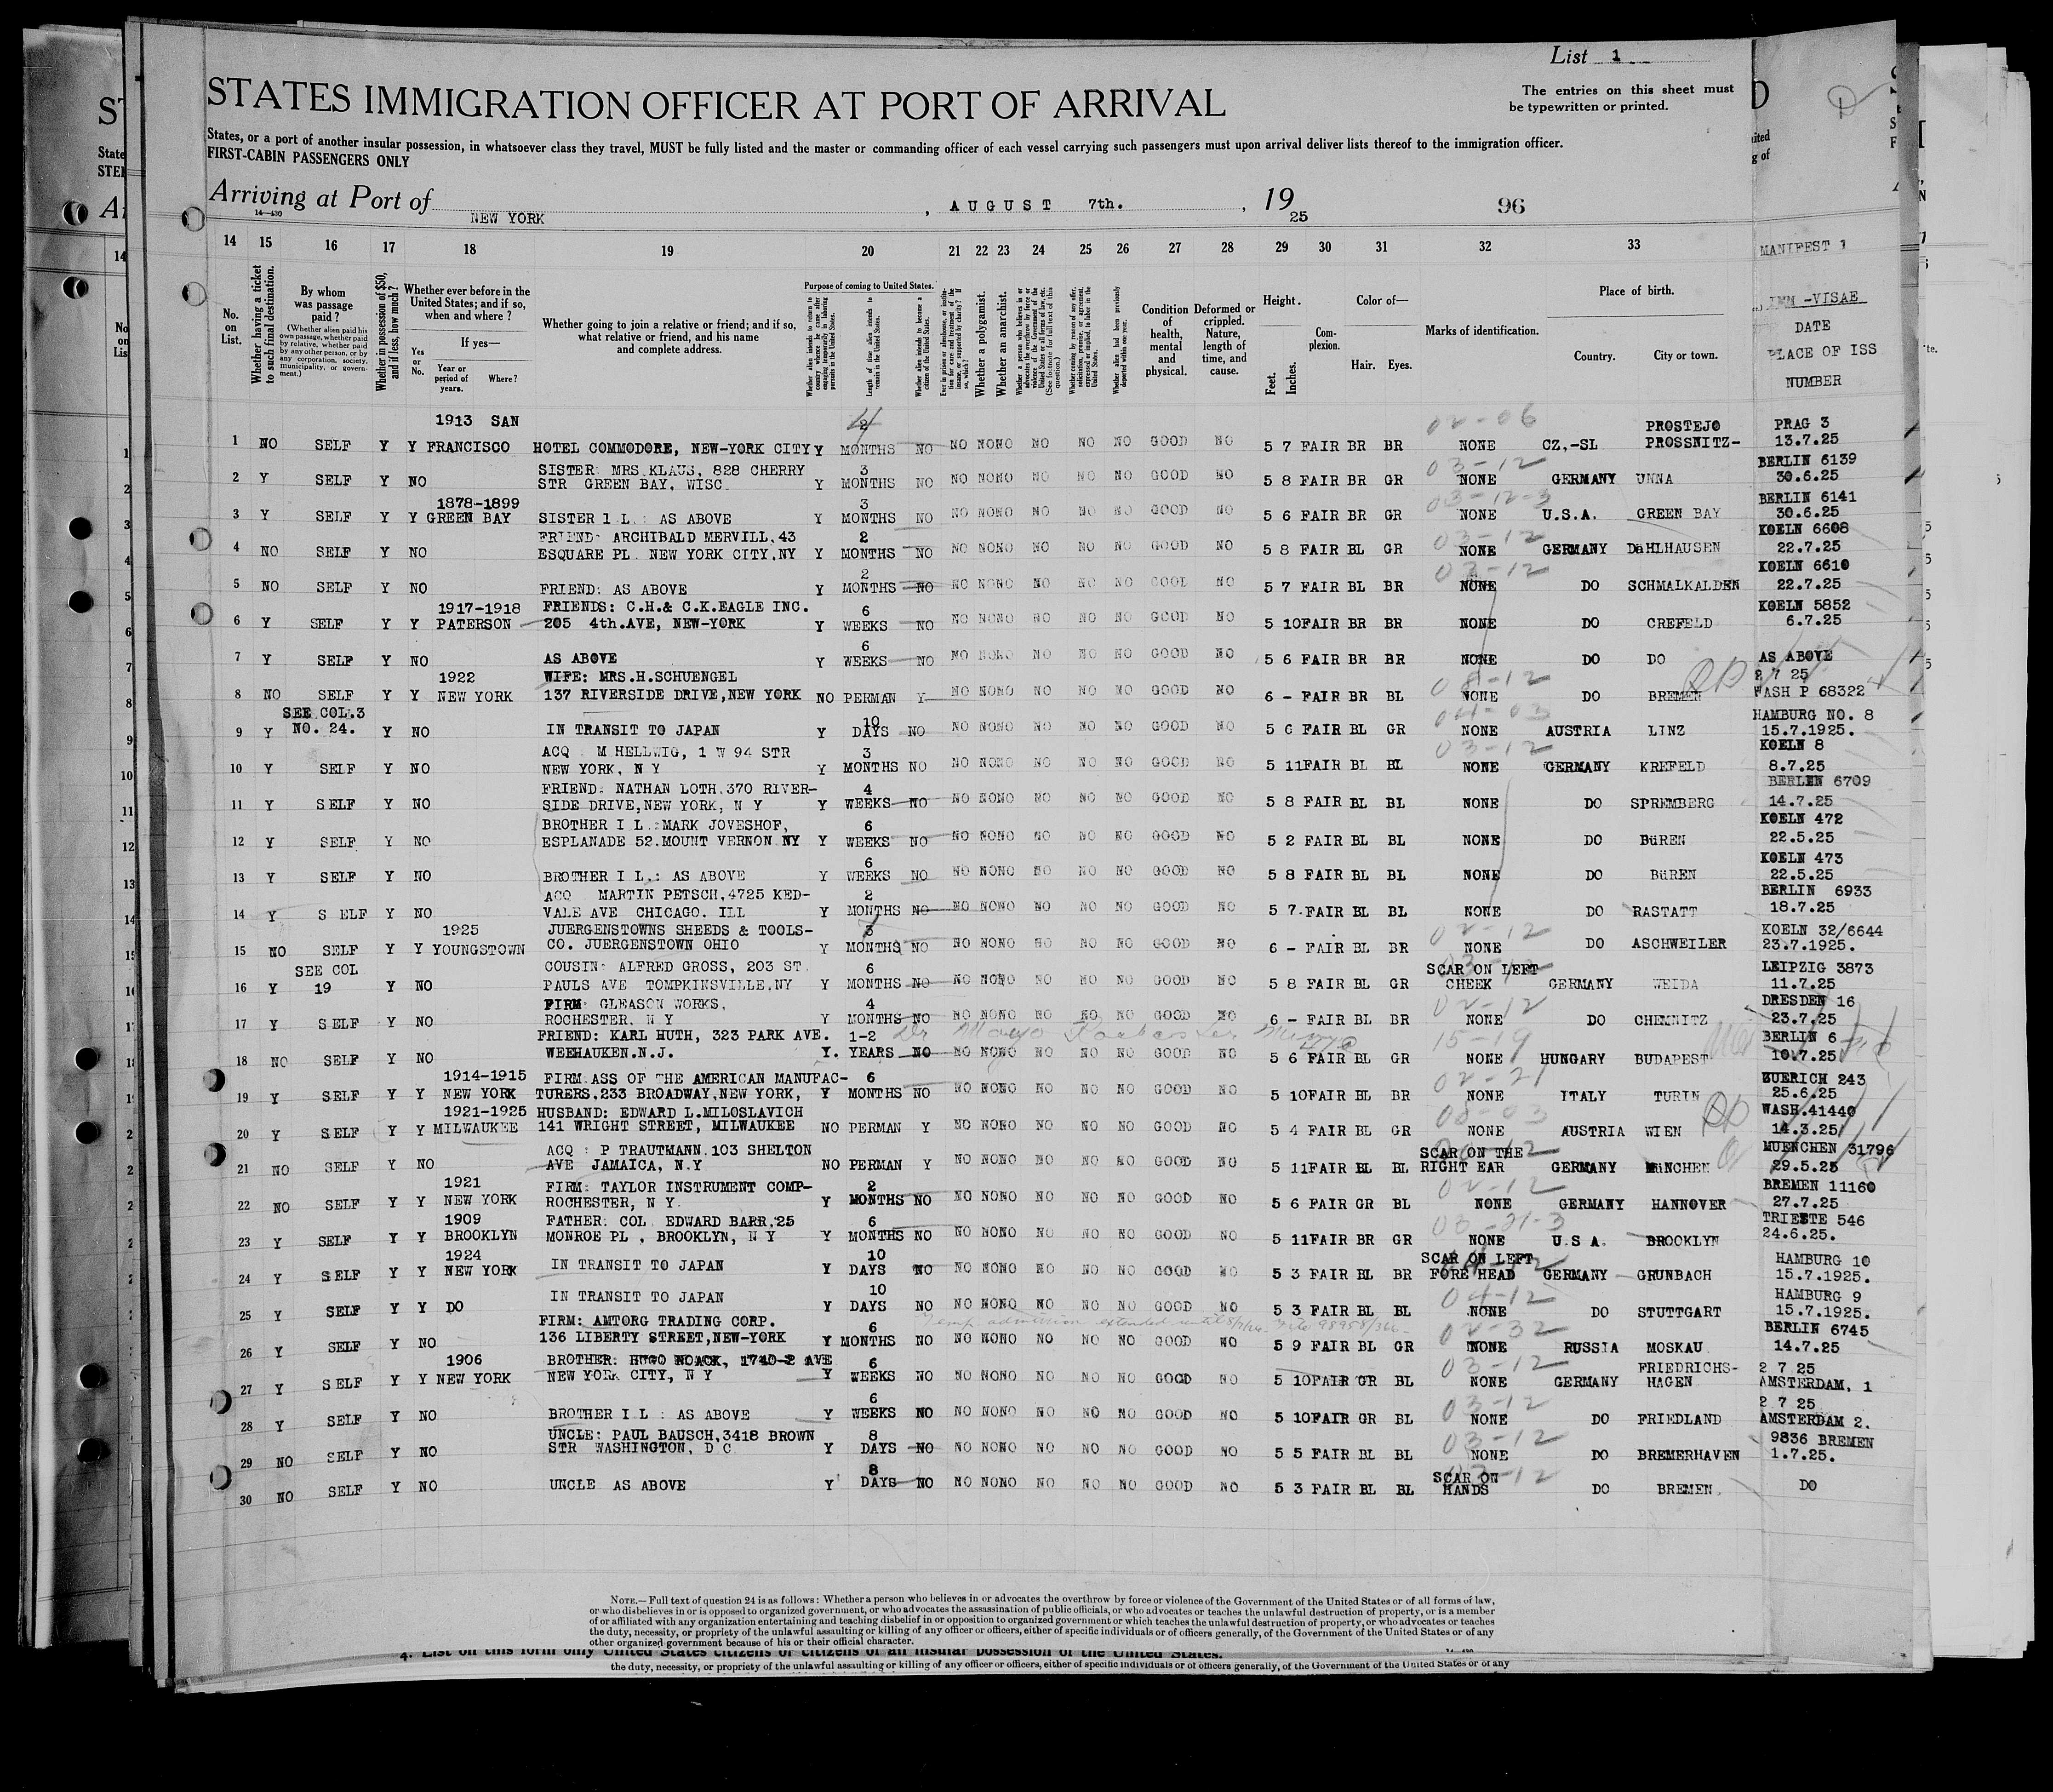 List 1
STATES IMMIGRATION OFFICER AT PORT OF ARRIVAL
The entries on this sheet must
be typewritten or printed.
States, or a port of another insular possession, in whatsoever class they travel, MUST be fully listed and the master or commanding officer of each vessel carrying such passengers must upon arrival deliver lists thereof to the immigration officer.
FIRST-CABIN PASSENGERS ONLY
Arriving at Port of NEW YORK, AUGUST 7th., 1925
14—430
96
14 15 16 17 18 19 20 21 22 23 24 25 26 27 28 29 30 31 32 33
MANIFEST 1
No. on List.
Whether having a ticket to such final destination.
By whom was passage paid?
(Whether alien paid his own passage, whether paid by relative, whether paid by any other person, or by any corporation, society, municipality, or government.)
Whether in possession of $50, and if less, how much?
Whether ever before in the United States; and if so, when and where?
If yes—
Yes or No.
Year or period of years.
Where?
Whether going to join a relative or friend; and if so, what relative or friend, and his name and complete address.
Purpose of coming to United States.
Length of time alien intends to remain in the United States.
Whether alien intends to become a citizen of the United States.
Whether a polygamist.
Whether an anarchist.
Whether alien had been previously deported within one year.
Condition of health, mental and physical.
Deformed or crippled. Nature, length of time, and cause.
Height.
Feet. Inches.
Complexion.
Color of—
Hair. Eyes.
Marks of identification.
Place of birth.
Country. City or town.
IMM -VISAE
DATE
PLACE OF ISS
NUMBER
1913 SAN 2 02-06 PROSTEJO PRAG 3
1 NO SELF Y Y FRANCISCO HOTEL COMMODORE, NEW-YORK CITY Y MONTHS NO NO NONO NO NO NO GOOD NO 5 7 FAIR BR BR NONE CZ.-SL PROSSNITZ- 13.7.25
SISTER: MRS KLAUS, 828 CHERRY 3 03-12 BERLIN 6139
2 Y SELF Y NO STR GREEN BAY, WISC. Y MONTHS NO NO NONO NO NO NO GOOD NO 5 8 FAIR BR GR NONE GERMANY UNNA 30.6.25
1878-1899 3 03-12-3 BERLIN 6141
3 Y SELF Y Y GREEN BAY SISTER I L.: AS ABOVE Y MONTHS NO NO NONO NO NO NO GOOD NO 5 6 FAIR BR GR NONE U.S.A. GREEN BAY 30.6.25
FRIEND: ARCHIBALD MERVILL, 43 2 03-12 KOELN 6608
4 NO SELF Y NO ESQUARE PL. NEW YORK CITY, NY Y MONTHS NO NO NONO NO NO NO GOOD NO 5 8 FAIR BL GR NONE GERMANY DäHLHAUSEN 22.7.25
2 03-12 KOELN 6610
5 NO SELF Y NO FRIEND: AS ABOVE Y MONTHS NO NO NONO NO NO NO GOOD NO 5 7 FAIR BL BR NONE DO SCHMALKALDEN 22.7.25
1917-1918 FRIENDS: C.H.& C.K.EAGLE INC. 6 KOELN 5852
6 Y SELF Y Y PATERSON 205 4th.AVE, NEW-YORK Y WEEKS NO NO NONO NO NO NO GOOD NO 5 10 FAIR BR BR NONE DO CREFELD 6.7.25
6
7 Y SELF Y NO AS ABOVE Y WEEKS NO NO NONO NO NO NO GOOD NO 5 6 FAIR BR BR NONE DO DO AS ABOVE
1922 WIFE: MRS.H.SCHUENGEL 08-12 2 7 25
8 NO SELF Y Y NEW YORK 137 RIVERSIDE DRIVE, NEW YORK NO PERMAN Y NO NONO NO NO NO GOOD NO 6 - FAIR BR BL NONE DO BREMEN WASH P 68322
SEE COL.3 10 04-03 HAMBURG NO. 8
9 Y NO. 24. Y NO IN TRANSIT TO JAPAN Y DAYS NO NO NONO NO NO NO GOOD NO 5 6 FAIR BL GR NONE AUSTRIA LINZ 15.7.1925.
ACQ M HELLWIG, 1 W 94 STR 3 03-12 KOELN 8
10 Y SELF Y NO NEW YORK, N Y Y MONTHS NO NO NONO NO NO NO GOOD NO 5 11 FAIR BL BL NONE GERMANY KREFELD 8.7.25
FRIEND: NATHAN LOTH, 370 RIVER- 4 BERLIN 6709
11 Y SELF Y NO SIDE DRIVE, NEW YORK, N Y Y WEEKS NO NO NONO NO NO NO GOOD NO 5 8 FAIR BL BL NONE DO SPREMBERG 14.7.25
BROTHER I L.: MARK JOVESHOF, 6 KOELN 472
12 Y SELF Y NO ESPLANADE 52. MOUNT VERNON NY Y WEEKS NO NO NONO NO NO NO GOOD NO 5 2 FAIR BL BL NONE DO BüREN 22.5.25
6 KOELN 473
13 Y SELF Y NO BROTHER I L.: AS ABOVE Y WEEKS NO NO NONO NO NO NO GOOD NO 5 8 FAIR BL BL NONE DO BüREN 22.5.25
ACQ MARTIN PETSCH, 4725 KED- 2 BERLIN 6933
14 Y SELF Y NO VALE AVE CHICAGO. ILL Y MONTHS NO NO NONO NO NO NO GOOD NO 5 7 FAIR BL BL NONE DO RASTATT 18.7.25
1925 JUERGENSTOWNS SHEEDS & TOOLS- 3 02-12 KOELN 32/6644
15 NO SELF Y Y YOUNGSTOWN CO. JUERGENSTOWN OHIO Y MONTHS NO NO NONO NO NO NO GOOD NO 6 - FAIR BL BR NONE DO ASCHWEILER 23.7.1925.
SEE COL COUSIN: ALFRED GROSS, 203 ST. 6 SCAR ON LEFT LEIPZIG 3873
16 Y 19 Y NO PAULS AVE TOMPKINSVILLE, NY Y MONTHS NO NO NONO NO NO NO GOOD NO 5 8 FAIR BL GR CHEEK GERMANY WEIDA 11.7.25
FIRM: GLEASON WORKS, 4 02-12 DRESDEN 16
17 Y SELF Y NO ROCHESTER, N Y Y MONTHS NO NO NONO NO NO NO GOOD NO 6 - FAIR BL BR NONE DO CHEMNITZ 23.7.25
FRIEND: KARL HUTH, 323 PARK AVE. 1-2 Dr Mayo Rochester Minn 15-19 BERLIN 6
18 NO SELF Y NO WEEHAUKEN.N.J. Y. YEARS NO NO NONO NO NO NO GOOD NO 5 6 FAIR BL GR NONE HUNGARY BUDAPEST 10.7.25
1914-1915 FIRM ASS OF THE AMERICAN MANUFAC- 6 02-21 ZUERICH 243
19 Y SELF Y Y NEW YORK TURERS, 233 BROADWAY, NEW YORK, Y MONTHS NO NO NONO NO NO NO GOOD NO 5 10 FAIR BL BR NONE ITALY TURIN 25.6.25
1921-1925 HUSBAND: EDWARD L.MILOSLAVICH 08-03 WASH.41440
20 Y SELF Y Y MILWAUKEE 141 WRIGHT STREET, MILWAUKEE NO PERMAN Y NO NONO NO NO NO GOOD NO 5 4 FAIR BL GR NONE AUSTRIA WIEN 14.3.25
ACQ : P TRAUTMANN. 103 SHELTON SCAR ON THE MUENCHEN 31796
21 NO SELF Y NO AVE JAMAICA, N.Y NO PERMAN Y NO NONO NO NO NO GOOD NO 5 11 FAIR BL BL RIGHT EAR GERMANY MüNCHEN 29.5.25
1921 FIRM: TAYLOR INSTRUMENT COMP- 2 02-12 BREMEN 11160
22 NO SELF Y Y NEW YORK ROCHESTER, N Y. Y MONTHS NO NO NONO NO NO NO GOOD NO 5 6 FAIR GR BL NONE GERMANY HANNOVER 27.7.25
1909 FATHER: COL EDWARD BARR, 25 6 03-21-3 TRIESTE 546
23 Y SELF Y Y BROOKLYN MONROE PL , BROOKLYN, N Y Y MONTHS NO NO NONO NO NO NO GOOD NO 5 11 FAIR BR GR NONE U.S A. BROOKLYN 24.6.25.
1924 10 SCAR ON LEFT HAMBURG 10
24 Y SELF Y Y NEW YORK IN TRANSIT TO JAPAN Y DAYS NO NO NONO NO NO NO GOOD NO 5 3 FAIR BL BR FORE HEAD GERMANY GRUNBACH 15.7.1925.
10 04-12 HAMBURG 9
25 Y SELF Y Y DO IN TRANSIT TO JAPAN Y DAYS NO NO NONO NO NO NO GOOD NO 5 3 FAIR BL BL NONE DO STUTTGART 15.7.1925.
FIRM: AMTORG TRADING CORP. 6 Temp admission extended until 02-32 BERLIN 6745
26 Y SELF Y NO 136 LIBERTY STREET, NEW-YORK Y MONTHS NO NO NONO NO NO NO GOOD NO 5 9 FAIR BL GR NONE RUSSIA MOSKAU 14.7.25
1906 BROTHER: HUGO NOACK, 1740-2 AVE 6 03-12 FRIEDRICHS- 2 7 25
27 Y SELF Y Y NEW YORK NEW YORK CITY, N Y Y WEEKS NO NO NONO NO NO NO GOOD NO 5 10 FAIR GR BL NONE GERMANY HAGEN AMSTERDAM, 1
6 03-12 2 7 25
28 Y SELF Y NO BROTHER I L : AS ABOVE Y WEEKS NO NO NONO NO NO NO GOOD NO 5 10 FAIR GR BL NONE DO FRIEDLAND AMSTERDAM 2.
UNCLE: PAUL BAUSCH, 3418 BROWN 8 03-12 9836 BREMEN
29 NO SELF Y NO STR WASHINGTON, D C Y DAYS NO NO NONO NO NO NO GOOD NO 5 5 FAIR BL BL NONE DO BREMERHAVEN 1.7.25.
8 SCAR ON
30 NO SELF Y NO UNCLE AS ABOVE Y DAYS NO NO NONO NO NO NO GOOD NO 5 3 FAIR BL BL HANDS DO BREMEN DO
NOTE.—Full text of question 24 is as follows: Whether a person who believes in or advocates the overthrow by force or violence of the Government of the United States or of all forms of law,
or who disbelieves in or is opposed to organized government, or who advocates the assassination of public officials, or who advocates or teaches the unlawful destruction of property, or is a member
of or affiliated with any organization entertaining and teaching disbelief in or opposition to organized government or which teaches the unlawful destruction of property, or who advocates or teaches
the duty, necessity, or propriety of the unlawful assaulting or killing of any officer or officers, either of specific individuals or of officers generally, of the Government of the United States or of any
other organized government because of his or their official character.
4. List on this form only United States citizens or citizens of an insular possession of the United States.
the duty, necessity, or propriety of the unlawful assaulting or killing of any officer or officers, either of specific individuals or of officers generally, of the Government of the United States or of any